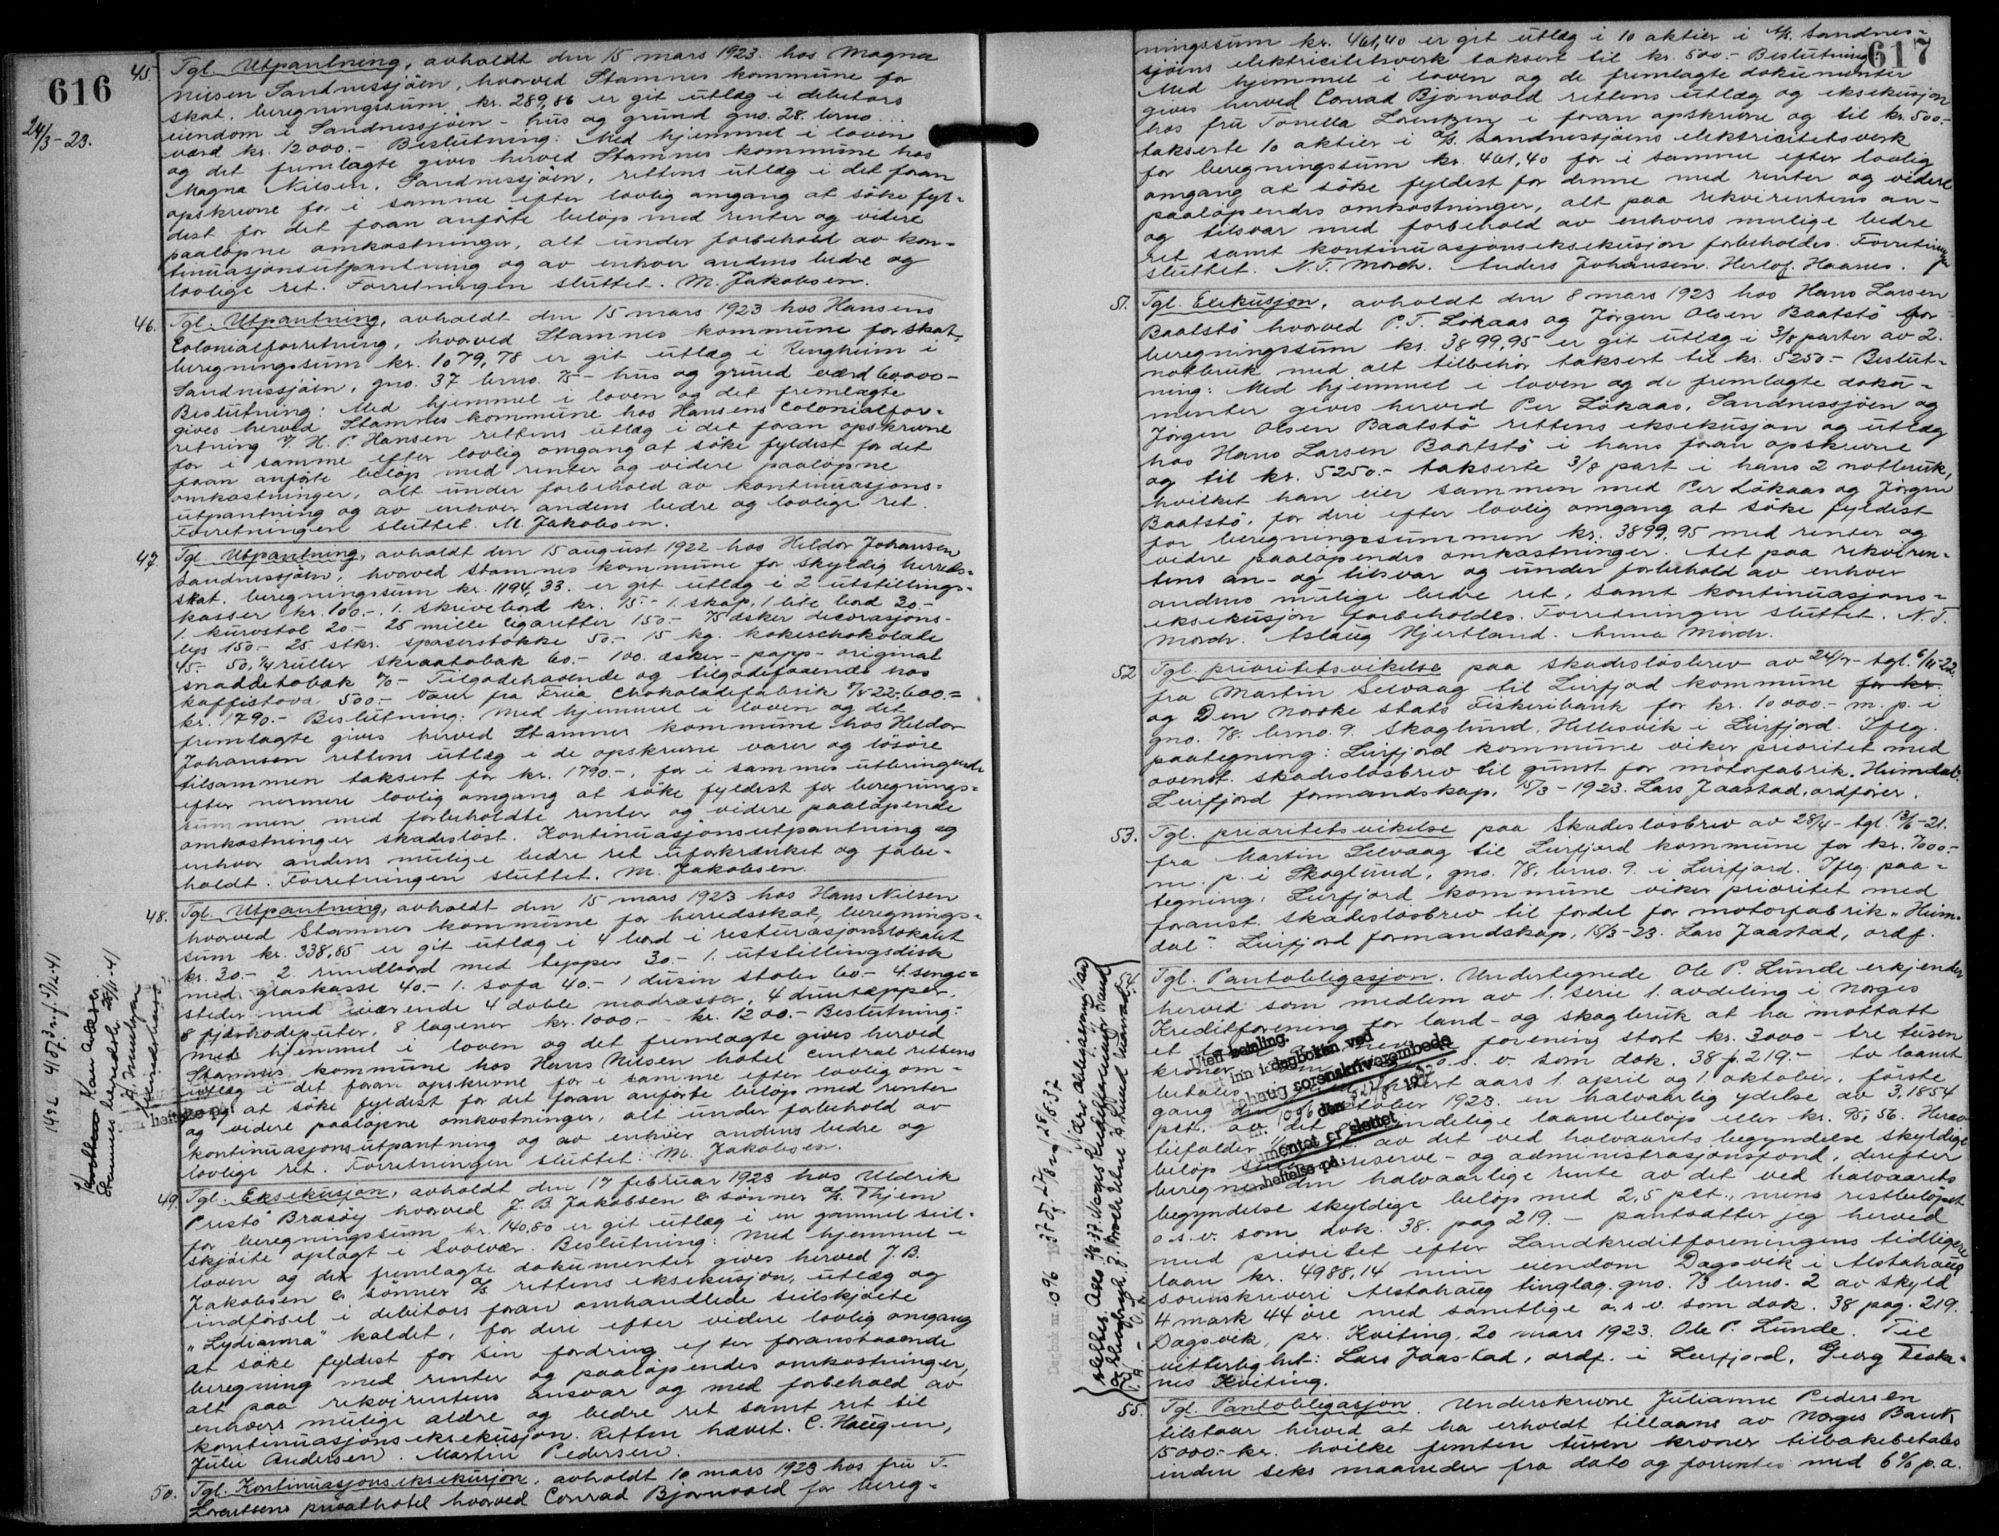 616
24/3-23.
45. Tgl. Utpantning, avholdt den 15 mars 1923 hos Magna
Nilsen Sandnessjöen, hvorved Stamnes kommune for
skat, beregningssum kr. 289,86 er git utlæg i debitors
eiendom i Sandnessjöen - hus og grund gno. 28. brno ...
værd kr. 12000.- Beslutning: Med hjemmel i loven
og det fremlagte gives herved Stamnes kommune hos
Magna Nilsen, Sandnessjöen, rettens utlæg i det foran
opskrevne for i samme efter lovlig omgang at söke fyl-
dest for det foran anförte belöp med renter og videre
paalöpne omkostninger, alt under forbehold av kon-
tinuasjonsutpantning og av enhver andens bedre og
lovlige ret. Forretningen sluttet. M. Jakobsen.
46. Tgl. Utpantning, avholdt den 15 mars 1923 hos Hansens
Colonialforretning, hvorved Stamnes kommune for skat,
beregningssum kr. 1079,78 er git utlæg i Ringheim i
Sandnessjöen, gno. 37 brno. 75 - hus og grund værd 60000-
Beslutning: Med hjemmel i loven og det fremlagte
gives herved Stamnes kommune hos Hansens Colonialfor-
retning v. H. P. Hansen rettens utlæg i det foran opskrevne
for i samme efter lovlig omgang at söke fyldest for det
foran anförte belöp med renter og videre paalöpne
omkostninger, alt under forbehold av kontinuasjons-
utpantning og av enhver andens bedre og lovlige ret.
Forretningen sluttet. M Jakobsen.
47. Tgl. Utpantning, avholdt den 15 august 1922 hos Heldor Johansen
Sandnessjöen, hvorved Stamnes kommune for skyldig herreds-
skat. beregningssum kr. 1194,33. er git utlæg i 2 utstillings-
kasser kr. 100.-. 1. skrivebord kr. 75.- 1. skap, 1 lite bord 30.-
1. kurvstol 20.- 25 mille cigaretter 150.- 75 æsker decorasjons-
lys 150.- 25. stkr. spaserstokke 50.- 15 kg. kokeschokolade
45.- 50,¼ ruller skraatobak 60.- 100. æsker - papp - original
snaddetobak - Tilgodehavende og tilgodehavende hos
kaffistova 500.- varer fra Freia Chokoladefabrik 600.-
kr. 1790.- Beslutning: Med hjemmel i loven og det
fremlagte gives herved Stamnes kommune hos Heldor
Johansen rettens utlæg i de opskrevne varer og lösöre
tilsammen taksert for kr. 1790.-, for i sammes utbringende
efter nermere lovlig omgang at söke fyldest for beregnings-
summen med forbeholdte renter og videre paalöpende
omkostninger skadeslöst. Kontinuasjonsutpantning og
enhver andens mulige bedre ret uforkrænket og forbe-
holdt. Forretningen sluttet. M. Jakobsen.
48. Tgl. Utpantning, avholdt den 15 mars 1923 hos Hans Nilsen
hvorved Stamnes kommune for herredsskat, beregnings-
sum kr. 338,85 er git utlæg i 4 bord i resturasjonslokalet
kr. 30.- 2. rundbord med tepper 30.- 1. utstillingsdisk
med glaskasse 40.- 1. sofa 40.- 1 dusin stoler 60.- 4. senge-
steder med iværende 4 doble madrasser, 4 duntepper,
8 fjærhodeputer, 8 lagener kr. 1000.- kr. 1200.- Beslutning:
Med hjemmel i loven og det fremlagte gives herved
Stamnes kommune hos Hans Nilsen hotel Central rettens
utlæg i det foran opskrevne for i samme efter lovlig om-
gang at söke fyldest for det foran anförte belöp med renter
og videre paalöpne omkostninger, alt under forbehold av
kontinuasjonsutpantning og av enhver andens bedre og
lovlige ret. Forretningen sluttet: M. Jakobsen.
49. Tgl. Eksekusjon, avholdt den 17 februar 1923 hos Uldrik
Prestö Brasöy hvorved J. B. Jakobsen & sönner a/s Thjem
for beregningssum kr. 140,80 er git utlæg i en gammel seil-
skjöite oplagt i Svolvær. Beslutning: Med hjemmel i
loven og det fremlagte dokumenter gives herved J. B.
Jakobsen & sönner a/s rettens eksekusjon, utlæg og
indförsel i debitors foran omhandlede seilskjöite
"Lydianna" kaldet, for deri efter videre lovlig omgang
at söke fyldest for sin fordring efter foranstaaende
beregning med renter og paalöpendes omkostninger,
alt paa rekvirentens ansvar og med forbehold av
enhvers mulige ældre og bedre ret samt ret til
kontinuasjonseksekusjon. Retten hævet. C. Haugen,
Julie Andersen. Martin Pedersen.
50. Tgl. Kontinuasjonseksekusjon, avholdt 10 mars 1923 hos fru T.
Lorentsens privathotel hvorved Conrad Bjornvold for bereg-
617
ningssum kr. 461,40 er git utlæg i 10 aktier i A/s. Sandnes-
sjöens elektricitetsverk taksert til kr. 500.- Beslutning:
Med hjemmel i loven og de fremlagte dokumenter
gives herved Conrad Bjornvold rettens utlæg og eksekusjon
hos fru Tonella Lorentzen i foran opskrevne og til kr. 500.-
takserte 10 aktier i a/s. Sandnessjöens elektricitetsverk
for beregningssum kr. 461,40 for i samme efter lovlig
omgang at söke fyldest for denne med renter og videre
paalöpendes omkostninger, alt paa rekvirentens an-
og tilsvar med forbehold av enhvers mulige bedre
ret samt kontinuasjonseksekusjon forbeholdes. Forretningen
sluttet. N. T. Morch. Anders Johansen. Herlof. Haanes.
51. Tgl. Exekusjon, avholdt den 8 mars 1923 hos Hans Larsen
Baatstö hvorved P. T. Lökaas og Jörgen Olsen Baatstö for
beregningssum kr. 3899,95 er git utlæg i 3/8 parter av 2.
notbruk med alt tilbehör taksert til kr. 5250.- Beslut-
ning: Med hjemmel i loven og de fremlagte doku-
menter gives herved Per Lökaas, Sandnessjöen og
Jörgen Olsen Baatstö rettens eksekusjon og utlæg
hos Hans Larsen Baatstö i hans foran opskrevne
og til kr. 5250.- takserte 3/8 part i hans 2 notbruk,
hvilket han eier sammen med Per Lökaas og Jörgen
Baatstö, for deri efter lovlig omgang at söke fyldest
for beregningssummen kr. 3899,95 med renter og
videre paalöpendes omkostninger. Alt paa rekviren-
tens an- og tilsvar og under forbehold av enhver
andens mulige bedre ret, samt kontinuasjons-
eksekusjon forbeholdes. Forretningen sluttet. N. T.
Morch. Aslaug Hjertland. Anna Morch.
52. Tgl. prioritetsvikelse paa skadeslösbrev av 24/7- tgl. 6/11-22.
fra Martin Selvaag til Leirfjord kommune for kr.
og Den Norske Stats Fiskeribank for kr. 10000.- m. p. i
gno. 78. brno. 9. Skoglund, Hellesvik i Leirfjord. Iflg.
paategning: Leirfjord kommune viker prioritet med
ovenst. skadeslösbrev til gunst for motorfabrik. Heimdal.
Leirfjord formandskap, 15/3-1923. Lars Jaastad, ordförer.
53. Tgl. prioritetsvikelse paa Skadeslösbrev av 28/4- tgl. -21.
fra Martin Selvaag til Leirfjord kommune for kr. 7000.-
m. p. i Skoglund, gno. 78, brno. 9. i Leirfjord. Iflg. paa-
tegning: Leirfjord kommune viker prioritet med
foranst. skadeslösbrev til fordel for motorfabrik "Heim-
dal". Leirfjord formandskap, 15/3-23. Lars Jaastad, ordf.
54. Tgl. Pantobligasjon. Undertegnede Ole P. Lunde erkjender
herved som medlem av 1. serie 1. avdeling i Norges
Kreditforening for land- og skogbruk at ha mottatt
et laan forening stort kr. 3000.- tre tusen
kroner o. s. v. som dok. 38 p. 219.- to laanet
betales hvert aars 1. april og 1. oktober, förste
gang den oktober 1923. en halvaarlig ydelse av 3,1854
pct. av det oprindelige laanebelöp eller kr. 95,56. Herav
tilfalder av det ved halvaarets begyndelse skyldige
belöp reserve- og administrasjonsfond, derefter
beregnes den halvaarlige rente av det ved halvaarets
begyndelse skyldige belöp med 2,5 pct., mens restbelöpet
o. s. v. som dok. 38. pag 219. - pantsætter jeg herved
med prioritet efter Landkreditforeningens tidligere
laan kr. 4988,14 min eiendom Dagsvik i Alstahaug
sorenskriveri Alstahaug tinglag. gno. 73 brno. 2 av skyld
4 mark 44 öre med samtlige o.s.v. som dok. 38 pag. 219.
Dagsvik, pr. Kviting. 20 mars 1923. Ole P. Lunde. Til
vitterlighet: Lars Jaastad, ordf. i Leirfjord. Georg Teska-
nes Kviting.
55. Tgl. Pantobligasjon. Underskrevne Julianne Pedersen
tilstaar herved at ha erholdt tillaans av Norges Bank
15000.- kr. hvilke femten tusen kroner tilbakebetales
inden seks maaneder fra dato og forrentes med 6% p.a.
Uten betaling.
inn i dagboken ved
sorenskriverembede
den
umentet er slettet
heftelse på
Dagbok nr. 1096
heftelse på